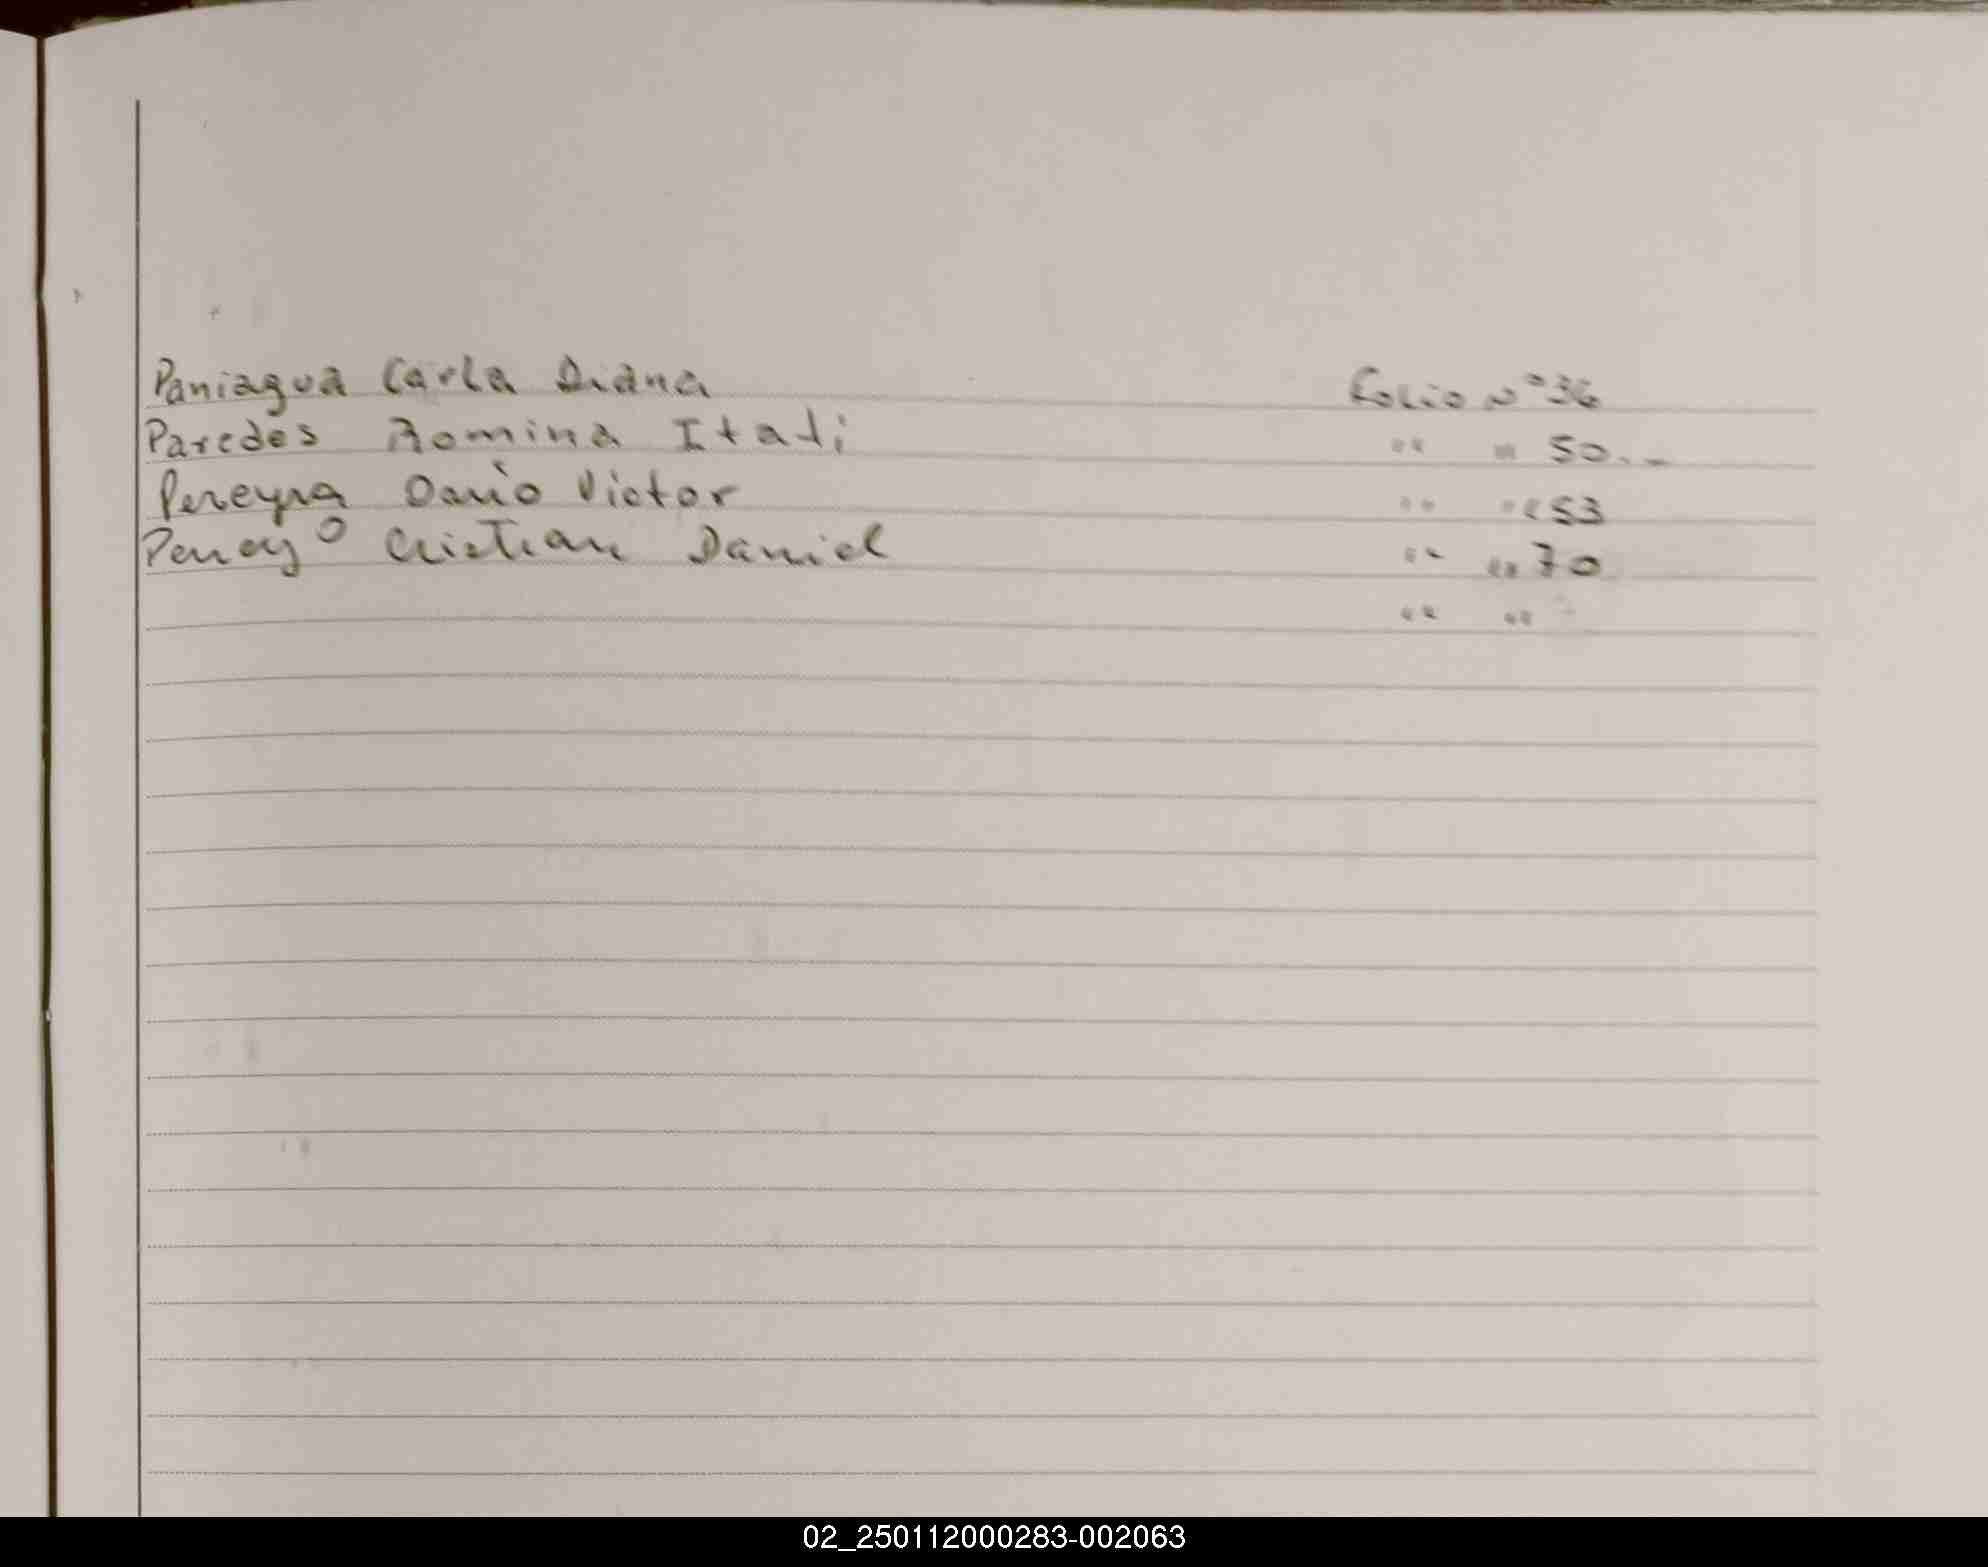 Paniagua Carla Diana Folio N° 36
Paredes Romina Itati " " 50.-
Pereyra Darìo Victor " " 53
Cristian Daniel " " 70
" "
02_250112000283-002063